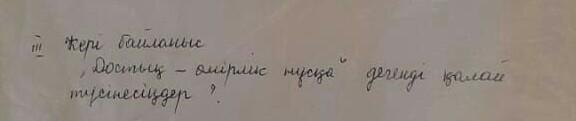 III Кері байланыс
„Достық – өмірлік нұсқа" дегенді қалай
түсінесіңдер?